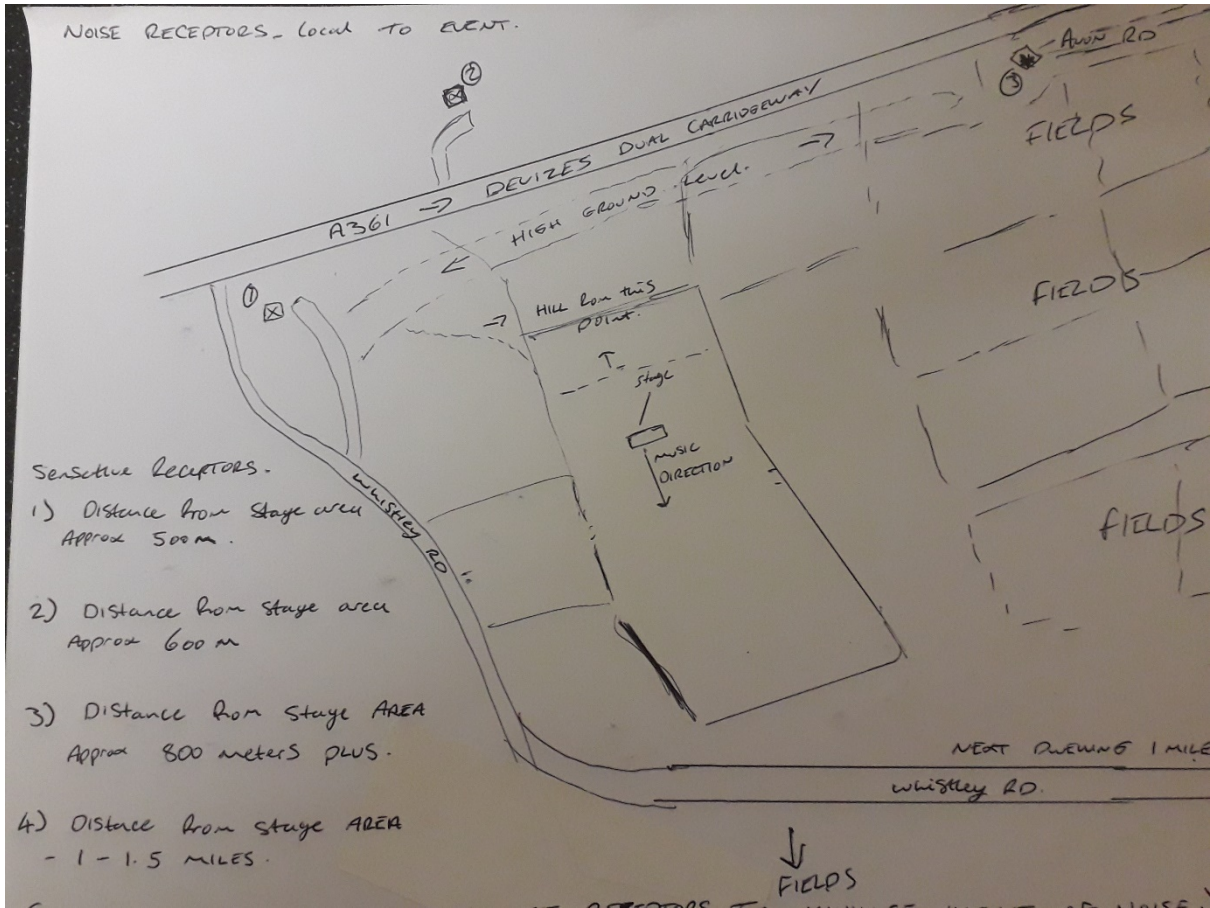 NOISE RECEPTORS - Local TO EVENT.
②
③
AVON RD
FIELDS
A361 → DEVIZES DUAL CARRIDGEWAY
HIGH GROUND Level.
①
HILL from this
point.
FIELDS
stage
MUSIC
DIRECTION
WHISTLEY RD
FIELDS
Sensetive RECEPTORS.
1) Distance from stage area
Approx 500m.
2) Distance from stage area
Approx 600 m
3) DIStance from stage AREA
Approx 800 meters plus.
4) Distace from stage AREA
- 1 - 1.5 MILES.
NEXT DWELLING 1 MILE
Whistley RD.
FIELDS
RECEPTORS TO OF NOISE.